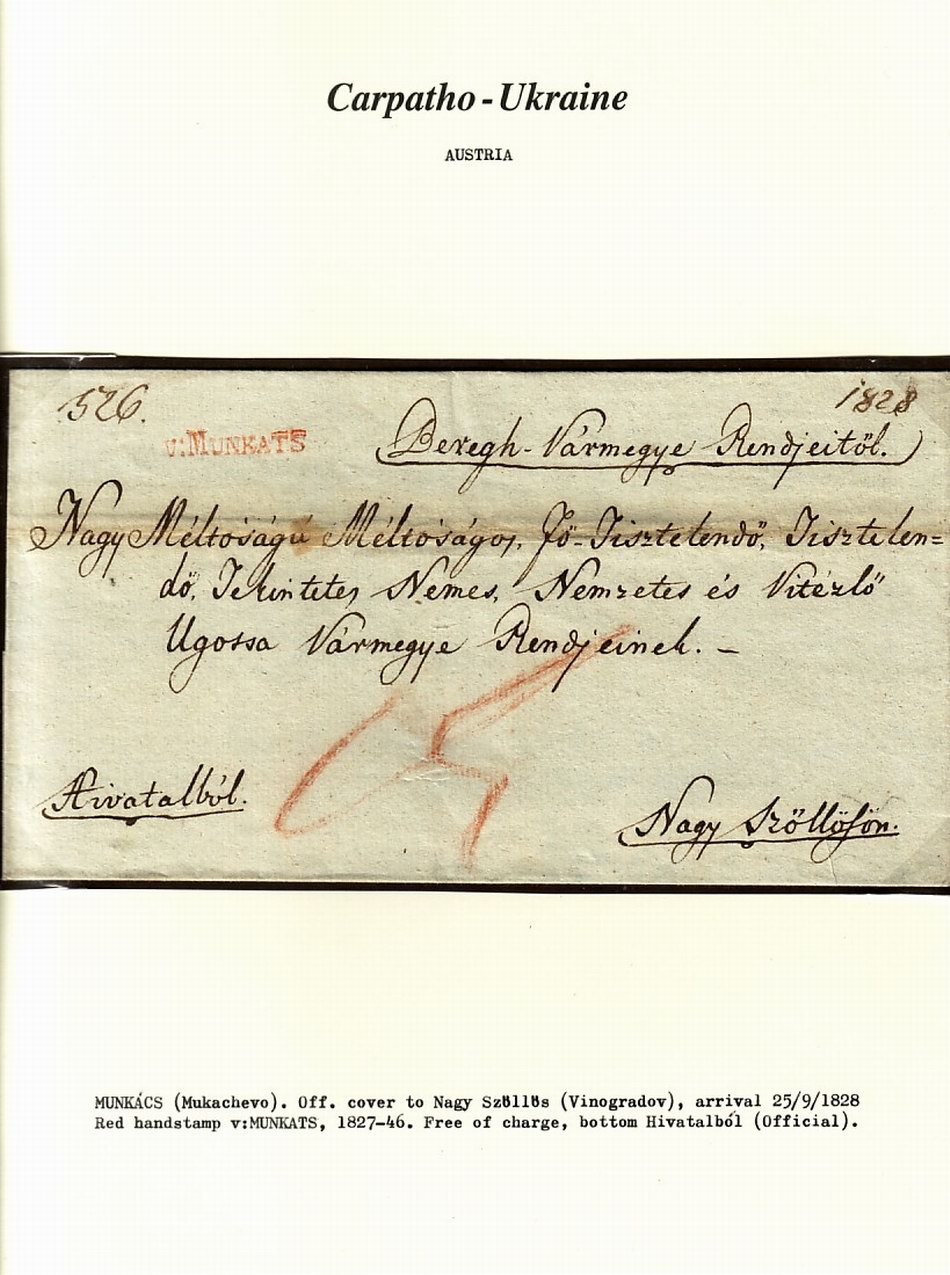 Carpatho - Ukraine
AUSTRIA
526.
1828
v:MUNKATS
Beregh - Vármegye Rendjeitöl.
Nagy Méltóságú Méltóságos, Fö-Tisztelendö, Tisztelen=
dö, Tekintetes Nemes, Nemzetes és Vitézlö
Ugossa Vármegye Rendjeinek. -
Hivatalból.
Nagy Szöllösön.
MUNKÁCS (Mukachevo). Off. cover to Nagy Szöllös (Vinogradov), arrival 25/9/1828
Red handstamp v:MUNKATS, 1827-46. Free of charge, bottom Hivatalból (Official).